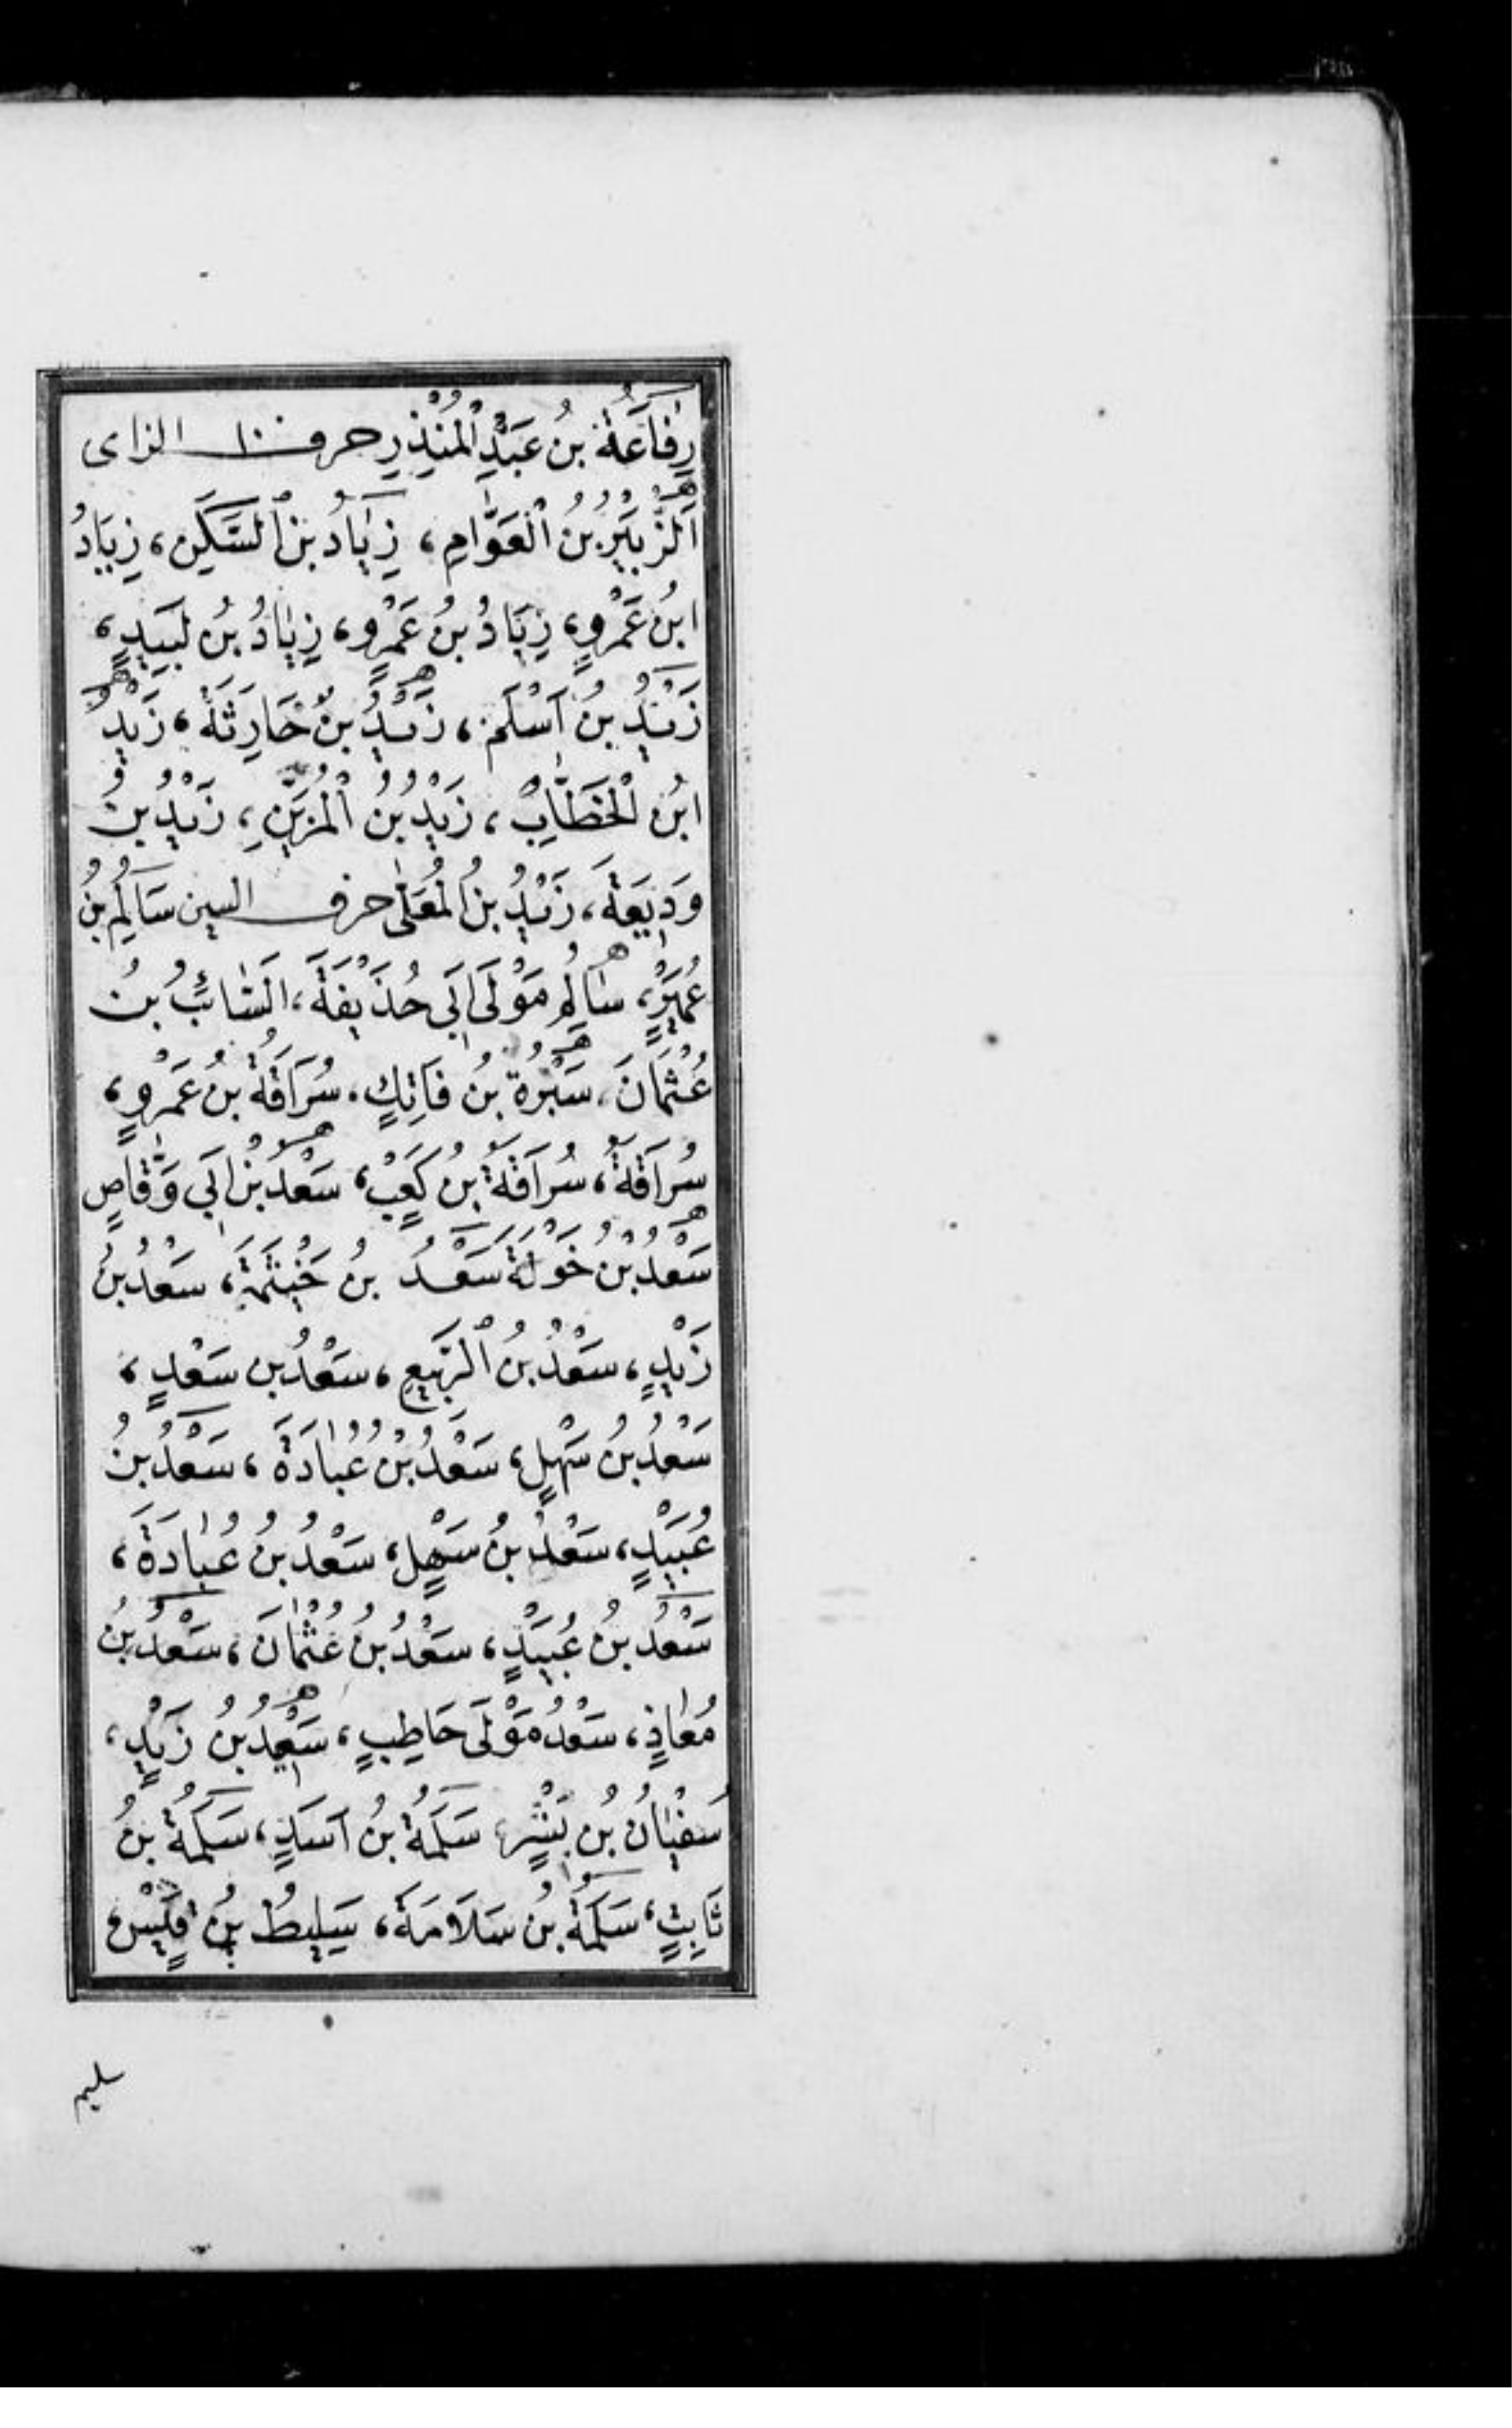 رِفَاعَةُ بْنُ عَبْدِ الْمُنْذِرِ حرف الزاى
اَلزُّبَيْرُ بْنُ الْعَوَّامِ، زِيَادُ بْنُ السَّكَنِ، زِيَادُ
ابْنُ عَمْرٍو، زِيَادُ بْنُ عَمْرٍو، زِيَادُ بْنُ لَبِيدٍ،
زَيْدُ بْنُ اَسْلَمَ، زَيْدُ بْنُ حَارِثَةَ، زَيْدُ
ابْنُ الْخَطَّابِ، زَيْدُ بْنُ الْمُزَيْنِ، زَيْدُ بْنُ
وَدِيعَةَ، زَيْدُ بْنُ الْمُعَلّٰى حرف السين سَالِمُ بْنُ
عُمَيْرٍ، سَالِمُ مَوْلَى اَبِى حُذَيْفَةَ، اَلسَّائِبُ بْنُ
عُثْمَانَ، سَبْرَةُ بْنُ فَاتِكٍ، سُرَاقَةُ بْنُ عَمْرٍو،
سُرَاقَةُ، سُرَاقَةُ بْنُ كَعْبٍ، سَعْدُ بْنُ اَبِى وَقَّاصٍ
سَعْدُ بْنُ خَوْلَةَ سَعْدُ بْنُ خَيْثَمَةَ، سَعْدُ بْنُ
زَيْدٍ، سَعْدُ بْنُ الرَّبِيعِ، سَعْدُ بْنُ سَعْدٍ،
سَعْدُ بْنُ سَهْلٍ، سَعْدُ بْنُ عُبَادَةَ، سَعْدُ بْنُ
عُبَيْدٍ، سَعْدُ بْنُ سَهْلٍ، سَعْدُ بْنُ عُبَادَةَ،
سَعْدُ بْنُ عُبَيْدٍ، سَعْدُ بْنُ عُثْمَانَ، سَعْدُ بْنُ
مُعَاذٍ، سَعْدُ مَوْلَى حَاطِبٍ، سَعِيدُ بْنُ زَيْدٍ،
سُفْيَانُ بْنُ بَشْرٍ، سَلَمَةُ بْنُ اَسَدٍ، سَلَمَةُ بْنُ
ثَابِتٍ، سَلَمَةُ بْنُ سَلَامَةَ، سَلِيطُ بْنُ قَيْسٍ
سليم